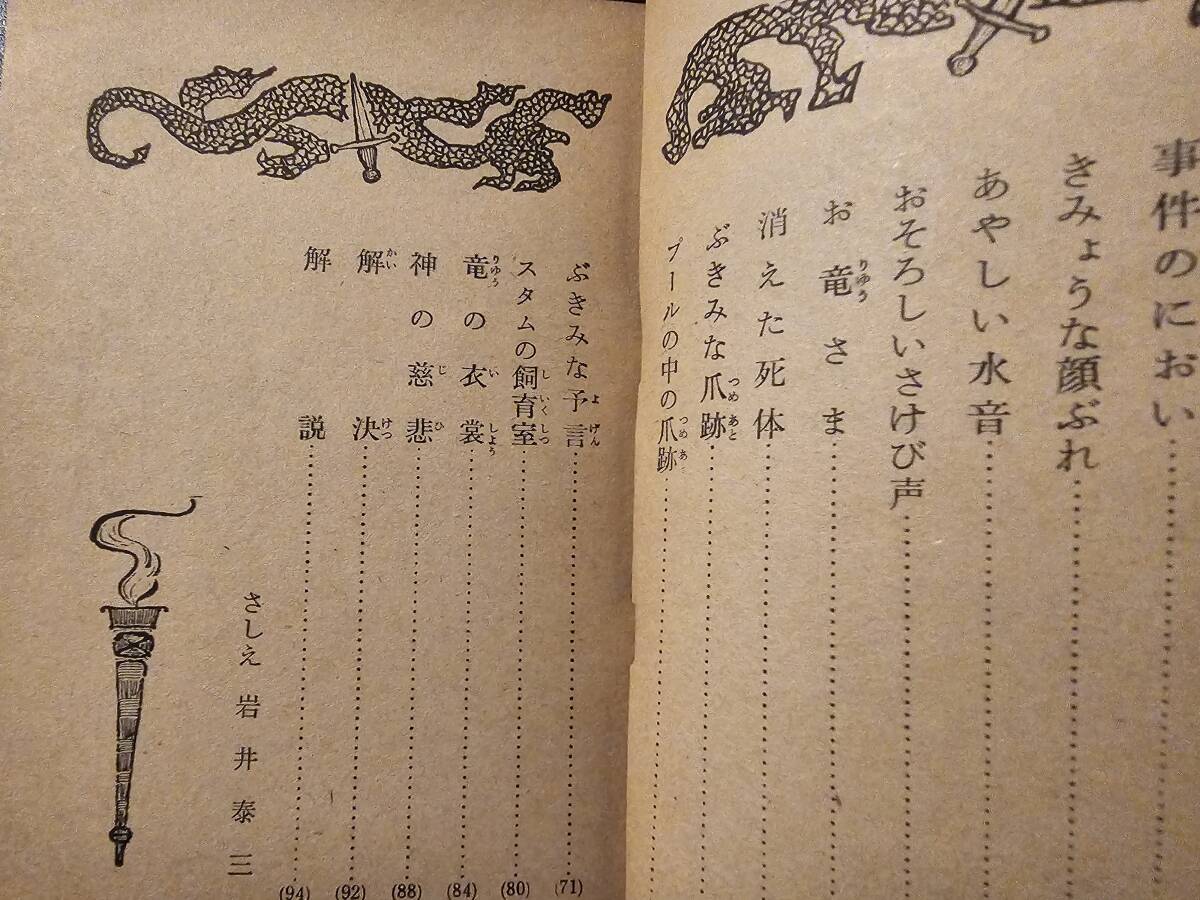 事件のにおい
きみょうな顔ぶれ
あやしい水音
おそろしいさけび声
お竜さま
消えた死体
ぶきみな爪跡
プールの中の爪跡
ぶきみな予言 (71)
スタムの飼育室 (80)
竜の衣裳 (84)
神の慈悲 (88)
解決 (92)
解説 (94)
さしえ 岩井泰三